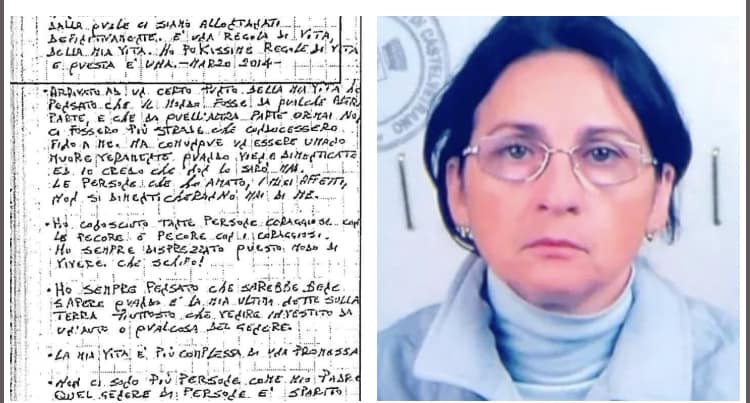 DALLA QUALE CI SIAMO ALLONTANATI
DEFINITIVAMENTE. E' UNA REGOLA DI VITA,
DELLA MIA VITA. HO POCHISSIME REGOLE DI VITA
E QUESTA E' UNA.-MARZO 2014-
• ARRIVATO AD UN CERTO PUNTO DELLA MIA VITA HO
PENSATO CHE IL MONDO FOSSE DA QUALCHE ALTRA
PARTE, E CHE DA QUELL'ALTRA PARTE ORMAI NON
CI FOSSERO PIÙ STRADE CHE CONDUCESSERO
FINO A ME. MA COMUNQUE UN ESSERE UMANO
MUORE VERAMENTE QUANDO VIENE DIMENTICATO
ED IO CREDO CHE NON LO SARÒ MAI.
LE PERSONE CHE HO AMATO, I MIEI AFFETTI,
NON SI DIMENTICHERANNO MAI DI ME.
• HO CONOSCIUTO TANTE PERSONE CORAGGIOSE CON
LE PECORE E PECORE CON I CORAGGIOSI.
HO SEMPRE DISPREZZATO QUESTO MODO DI
VIVERE. CHE SCHIFO!
• HO SEMPRE PENSATO CHE SAREBBE BENE
SAPERE QUANDO E' LA MIA ULTIMA NOTTE SULLA
TERRA PIUTTOSTO CHE VENIRE INVESTITO DA
UN'AUTO O QUALCOSA DEL GENERE.
• LA MIA VITA E' PIÙ COMPLESSA DI UNA PROMESSA
• NON CI SONO PIÙ PERSONE COME MIO PADRE
QUEL GENERE DI PERSONE E' SPARITO
DI CASTELVETRANO